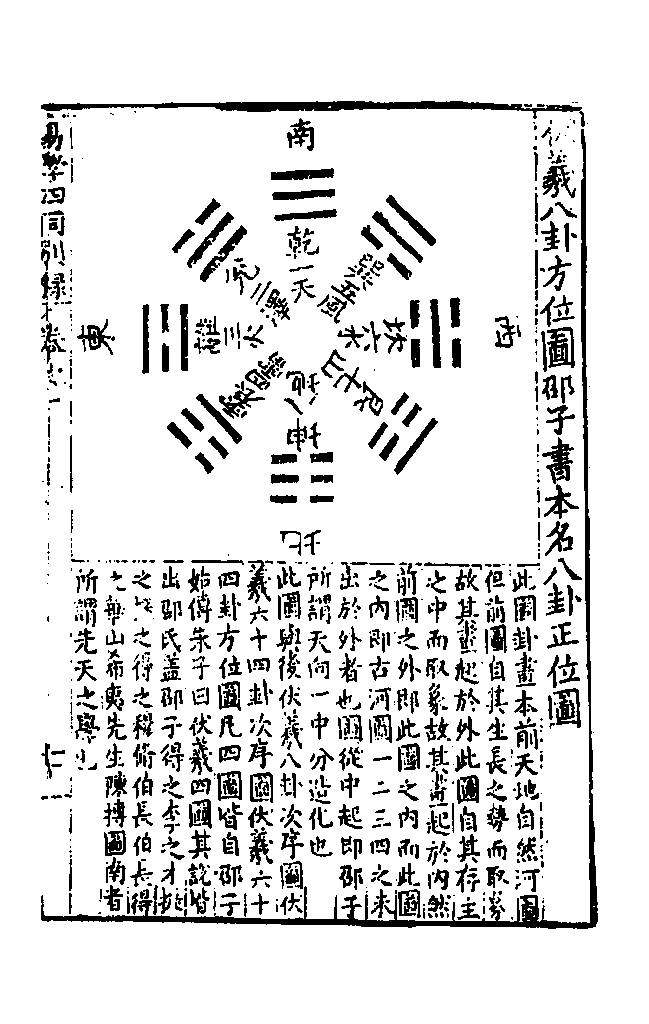 羲八卦方位圖邵子書本名八卦正位圖
南
乾一天
兌二澤
離三火
震四雷
巽五風
坎六水
艮七山
坤八地
東
西
北
此圖卦畫本前天地自然河圖
但前圖自其生長之勢而取象
故其畫起於外此圖自其存主
之中而取象故其畫起於內然
前圖之外即此圖之內而此圖
之內即古河圖一二三四之未
出於外者也圖從中起即邵子
所謂天向一中分造化也
此圖與後伏羲八卦次序圖伏
羲六十四卦次序圖伏羲六十
四卦方位圖凡四圖皆自邵子
始傳朱子曰伏羲四圖其說皆
出邵氏蓋邵子得之李之才挺
之挺之得之穆脩伯長伯長得
之華山希夷先生陳摶圖南者
所謂先天之學也
易學四同別錄卷之一
十一